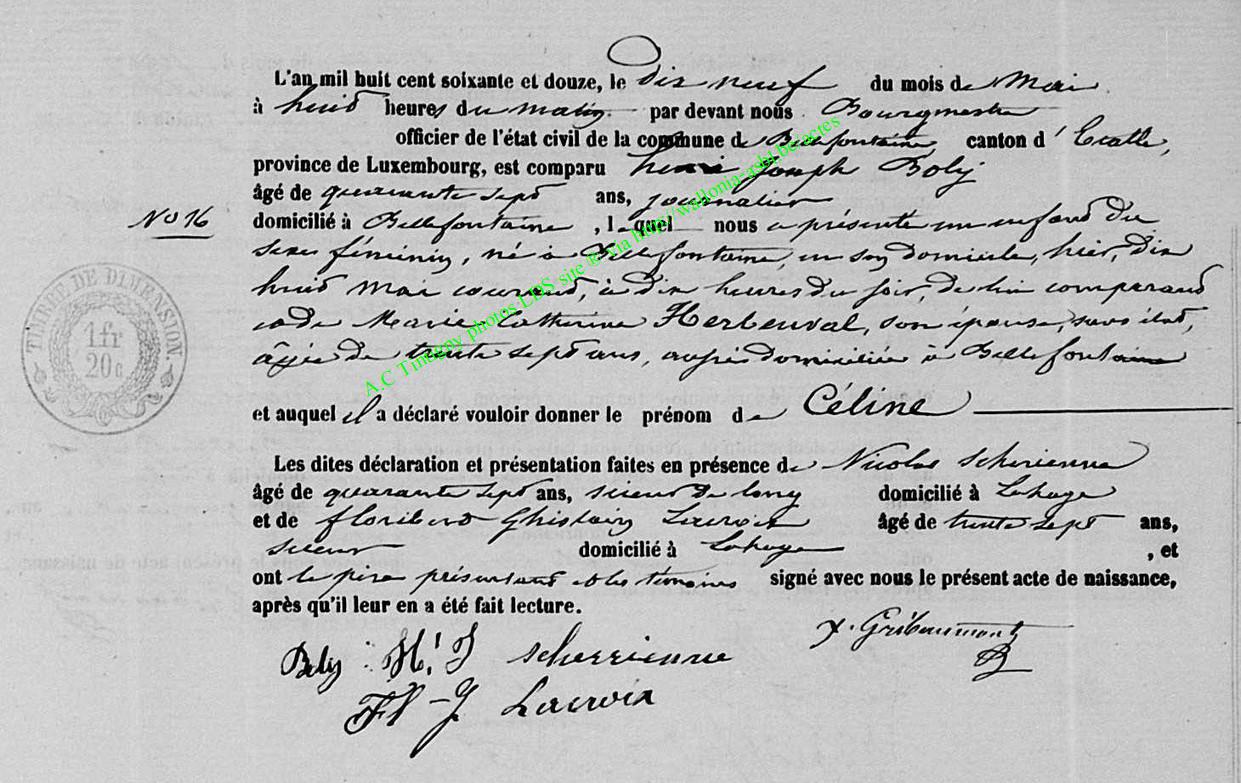 L'an mil huit cent soixante et douze, le dix neuf du mois de Mai
à huit heures du matin par devant nous Bourgmestre
officier de l'état civil de la commune de Bellefontaine canton d'Etalle,
province de Luxembourg, est comparu henri Joseph Boly
âgé de quarante sept ans, journalier
No 16
domicilié à Bellefontaine, lequel nous a présenté un enfant du
sexe féminin, né à Bellefontaine, en son domicile, hier, dix
huit Mai courant, à dix heures du soir, de lui comparant
et de Marie Catherine Herbeuval, son épouse, sans état,
âgée de trente sept ans, aussi domiciliée à Bellefontaine
et auquel il a déclaré vouloir donner le prénom de Céline
Les dites déclaration et présentation faites en présence de Nicolas Scherienne
âgé de quarante sept ans, scieur de long domicilié à Lahage
et de floribert Ghislain Lacroix âgé de trente sept ans,
scieur domicilié à Lahage, et
ont le père présentant et les témoins signé avec nous le présent acte de naissance,
après qu'il leur en a été fait lecture.
Gribaumont
Boly H. J Scherrienne
Fl-J Lacroix
TIMBRE DE DIMENSION.
1 fr
20 c
A.C Tintigny photos LDS site ® via http://wallonia-asbl.be actes